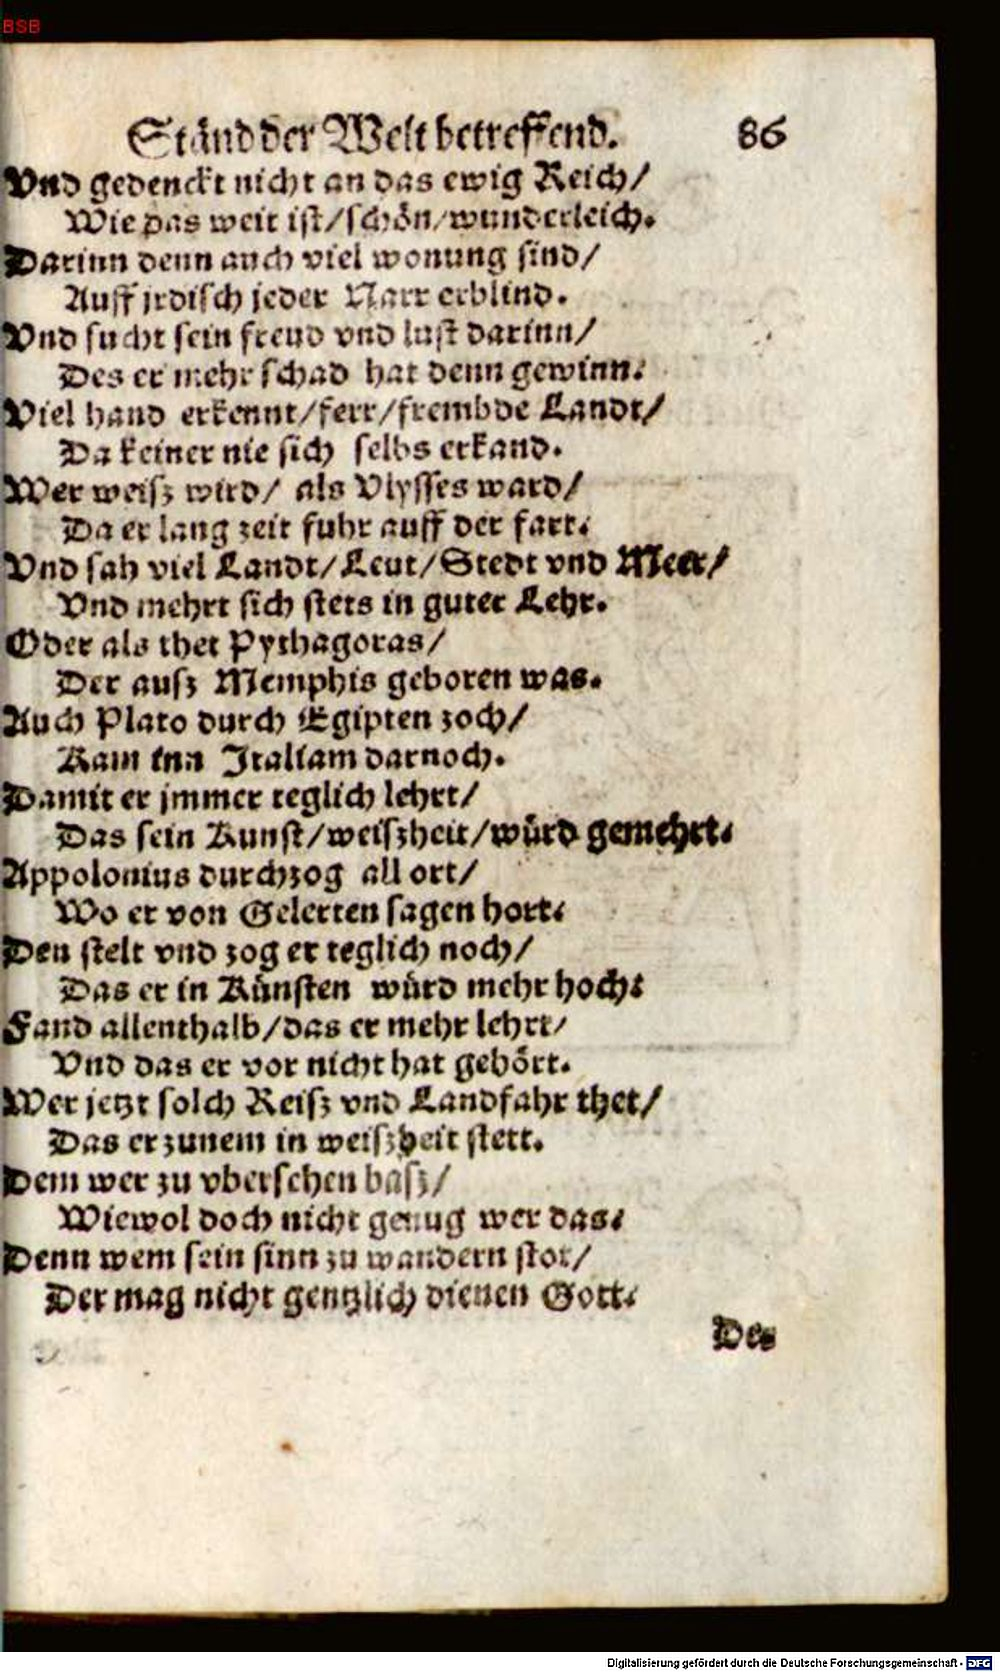 BSB
Ständ der Welt betreffend. 86
Vnd gedenckt nicht an das ewig Reich/
Wie das weit ist/schön/wunderleich.
Darinn denn auch viel wonung sind/
Auff jrdisch jeder Narr erblind.
Vnd sucht sein freud vnd lust darinn/
Des er mehr schad hat denn gewinn.
Viel hand erkennt/ferr/frembde Landt/
Da keiner nie sich selbs erkand.
Wer weisz wird/ als Vlysses ward/
Da er lang zeit fuhr auff der fart.
Vnd sah viel Landt/Leut/Stedt vnd Meer/
Vnd mehrt sich stets in guter Lehr.
Oder als thet Pythagoras/
Der ausz Memphis geboren was.
Auch Plato durch Egipten zoch/
Kam inn Italiam darnoch.
Damit er jmmer teglich lehrt/
Das sein Kunst/weiszheit/würd gemehrt.
Appolonius durchzog all ort/
Wo er von Gelerten sagen hort.
Den stelt vnd zog er teglich noch/
Das er in Künsten würd mehr hoch:
Fand allenthalb/das er mehr lehrt/
Vnd das er vor nicht hat gehört.
Wer jetzt solch Reisz vnd Landfahr thet/
Das er zunem in weiszheit stett.
Dem wer zu vbersehen basz/
Wiewol doch nicht genug wer das.
Denn wem sein sinn zu wandern stot/
Der mag nicht gentzlich dienen Gott.
Des
Digitalisierung gefördert durch die Deutsche Forschungsgemeinschaft - DFG